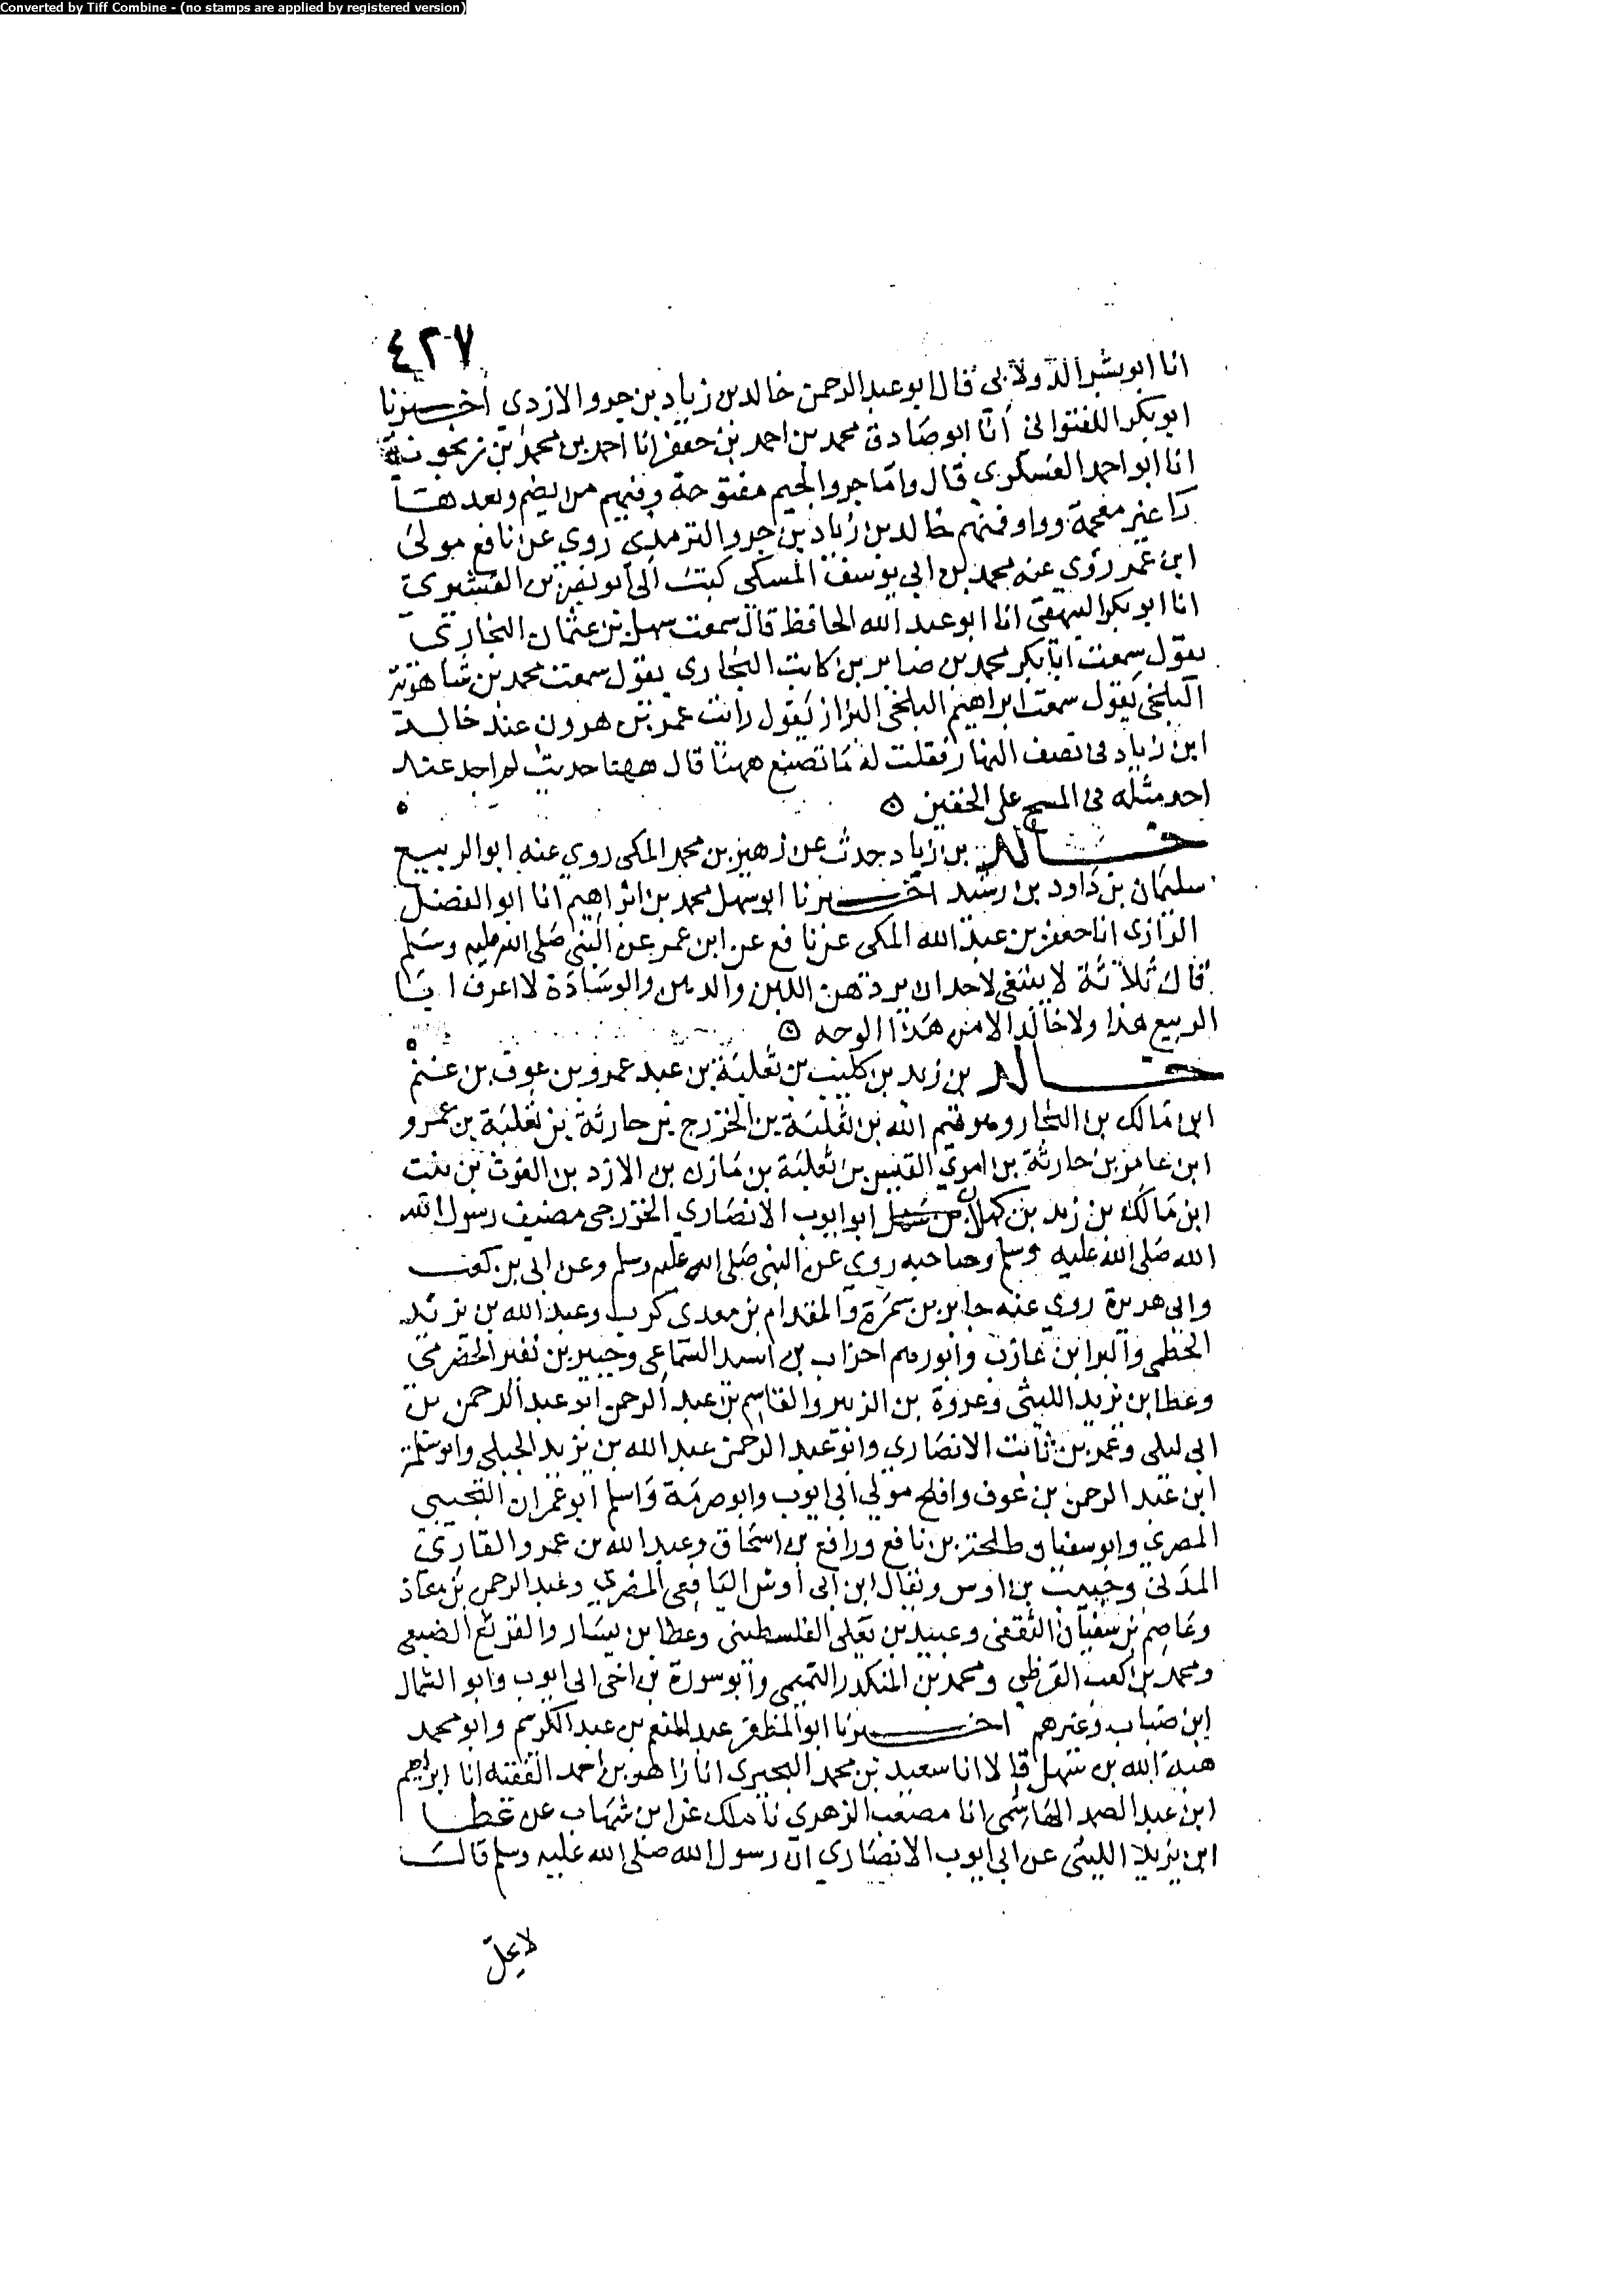 Converted by Tiff Combine - (no stamps are applied by registered version)
٤٢٧
انا ابو بشر الدولابي قال ابو عبد الرحمن خالد بن زياد بن جرو الازدي اخبرنا
ابو بكر اللفتواني انا ابو صادق محمد بن احمد بن جعفر انا احمد بن محمد بن زنجويه
انا ابو احمد العسكري قال واما جرو الجيم مفتوحة وفيهم من يضم وبعدها
را غير معجمة وواو فمنهم خالد بن زياد بن جرو الترمذي روي عن نافع مولى
ابن عمر روي عنه محمد بن ابي يوسف المسكي كتب الى ابو نصر بن القشيري
انا ابو بكر البيهقي انا ابو عبد الله الحافظ قال سمعت سهل بن عثمان البخاري
يقول سمعت ابا بكر محمد بن صابر بن كاتب البخاري يقول سمعت محمد بن شاهويه
البلخي يقول سمعت ابراهيم البلخي البزاز يقول رايت عمر بن هرون عند خالد
ابن زياد في نصف النهار فقلت له ما تصنع ههنا قال ههنا حديث لم اجد عند
احد مثله في المسح على الخفين
خالد بن زياد حدث عن زهير بن محمد المكي روي عنه ابو الربيع
سليمان بن داود بن رشيد اخبرنا ابو سهل محمد بن ابراهيم انا ابو الفضل
الرازي انا جعفر بن عبد الله المكي عن نافع عن ابن عمر عن النبي صلى الله عليه وسلم
قال ثلاثة لا ينبغي لاحد ان يردهن اللبن والدهن والوسادة لا اعرف ابا
الربيع هذا ولا خالد الا من هذا الوجه
خالد بن زيد بن كليب بن ثعلبة بن عبد عمرو بن عوف بن غنم
ابن مالك بن النجار وهو تيم الله بن ثعلبة بن الخزرج بن حارثة بن ثعلبة بن عمرو
ابن عامر بن حارثة بن امري القيس بن ثعلبة بن مازن بن الازد بن الغوث بن بنت
ابن مالك بن زيد بن كهلان بن سبا ابو ايوب الانصاري الخزرجي مضيف رسول الله
الله صلى الله عليه وسلم وصاحبه روي عن النبي صلى الله عليه وسلم وعن ابي بن كعب
وابي هريرة روي عنه جابر بن سمرة والمقدام بن معدي كرب وعبد الله بن يزيد
الخطمي والبرا بن عازب وابو رهم احزاب بن اسيد السماعي وجبير بن نفير الحضرمي
وعطا بن يزيد الليثي وعروة بن الزبير والقاسم بن عبد الرحمن ابو عبد الرحمن بن
ابي ليلى وعمر بن ثابت الانصاري وابو عبد الرحمن عبد الله بن يزيد الحبلي وابو سلمة
ابن عبد الرحمن بن عوف وافلح مولى ابي ايوب وابو صرمة واسلم ابو عمران التجيبي
المصري وابو سفيان طلحة بن نافع ورافع بن اسحاق وعبد الله بن عمرو القاري
المدني وحبيب بن اوس ويقال ابن ابي اوس اليافعي المصري وعبد الرحمن بن معاذ
وعاصم بن سفيان الثقفي وعبيد بن يعلى الفلسطيني وعطا بن يسار والقرثع الضبي
ومحمد بن كعب القرظي ومحمد بن المنكدر التيمي وابو سورة بن اخي ابي ايوب وابو الشمال
ابن ضباب وغيرهم اخبرنا ابو المظفر عبد المنعم بن عبد الكريم وابو محمد
هبة الله بن سهل قالا انا سعيد بن محمد البحيري انا زاهر بن احمد الفقيه انا ابراهيم
ابن عبد الصمد الهاشمي انا مصعب الزهري نا ملك عن ابن شهاب عن عطا
ابن يزيد الليثي عن ابي ايوب الانصاري ان رسول الله صلى الله عليه وسلم قال
لا يحل